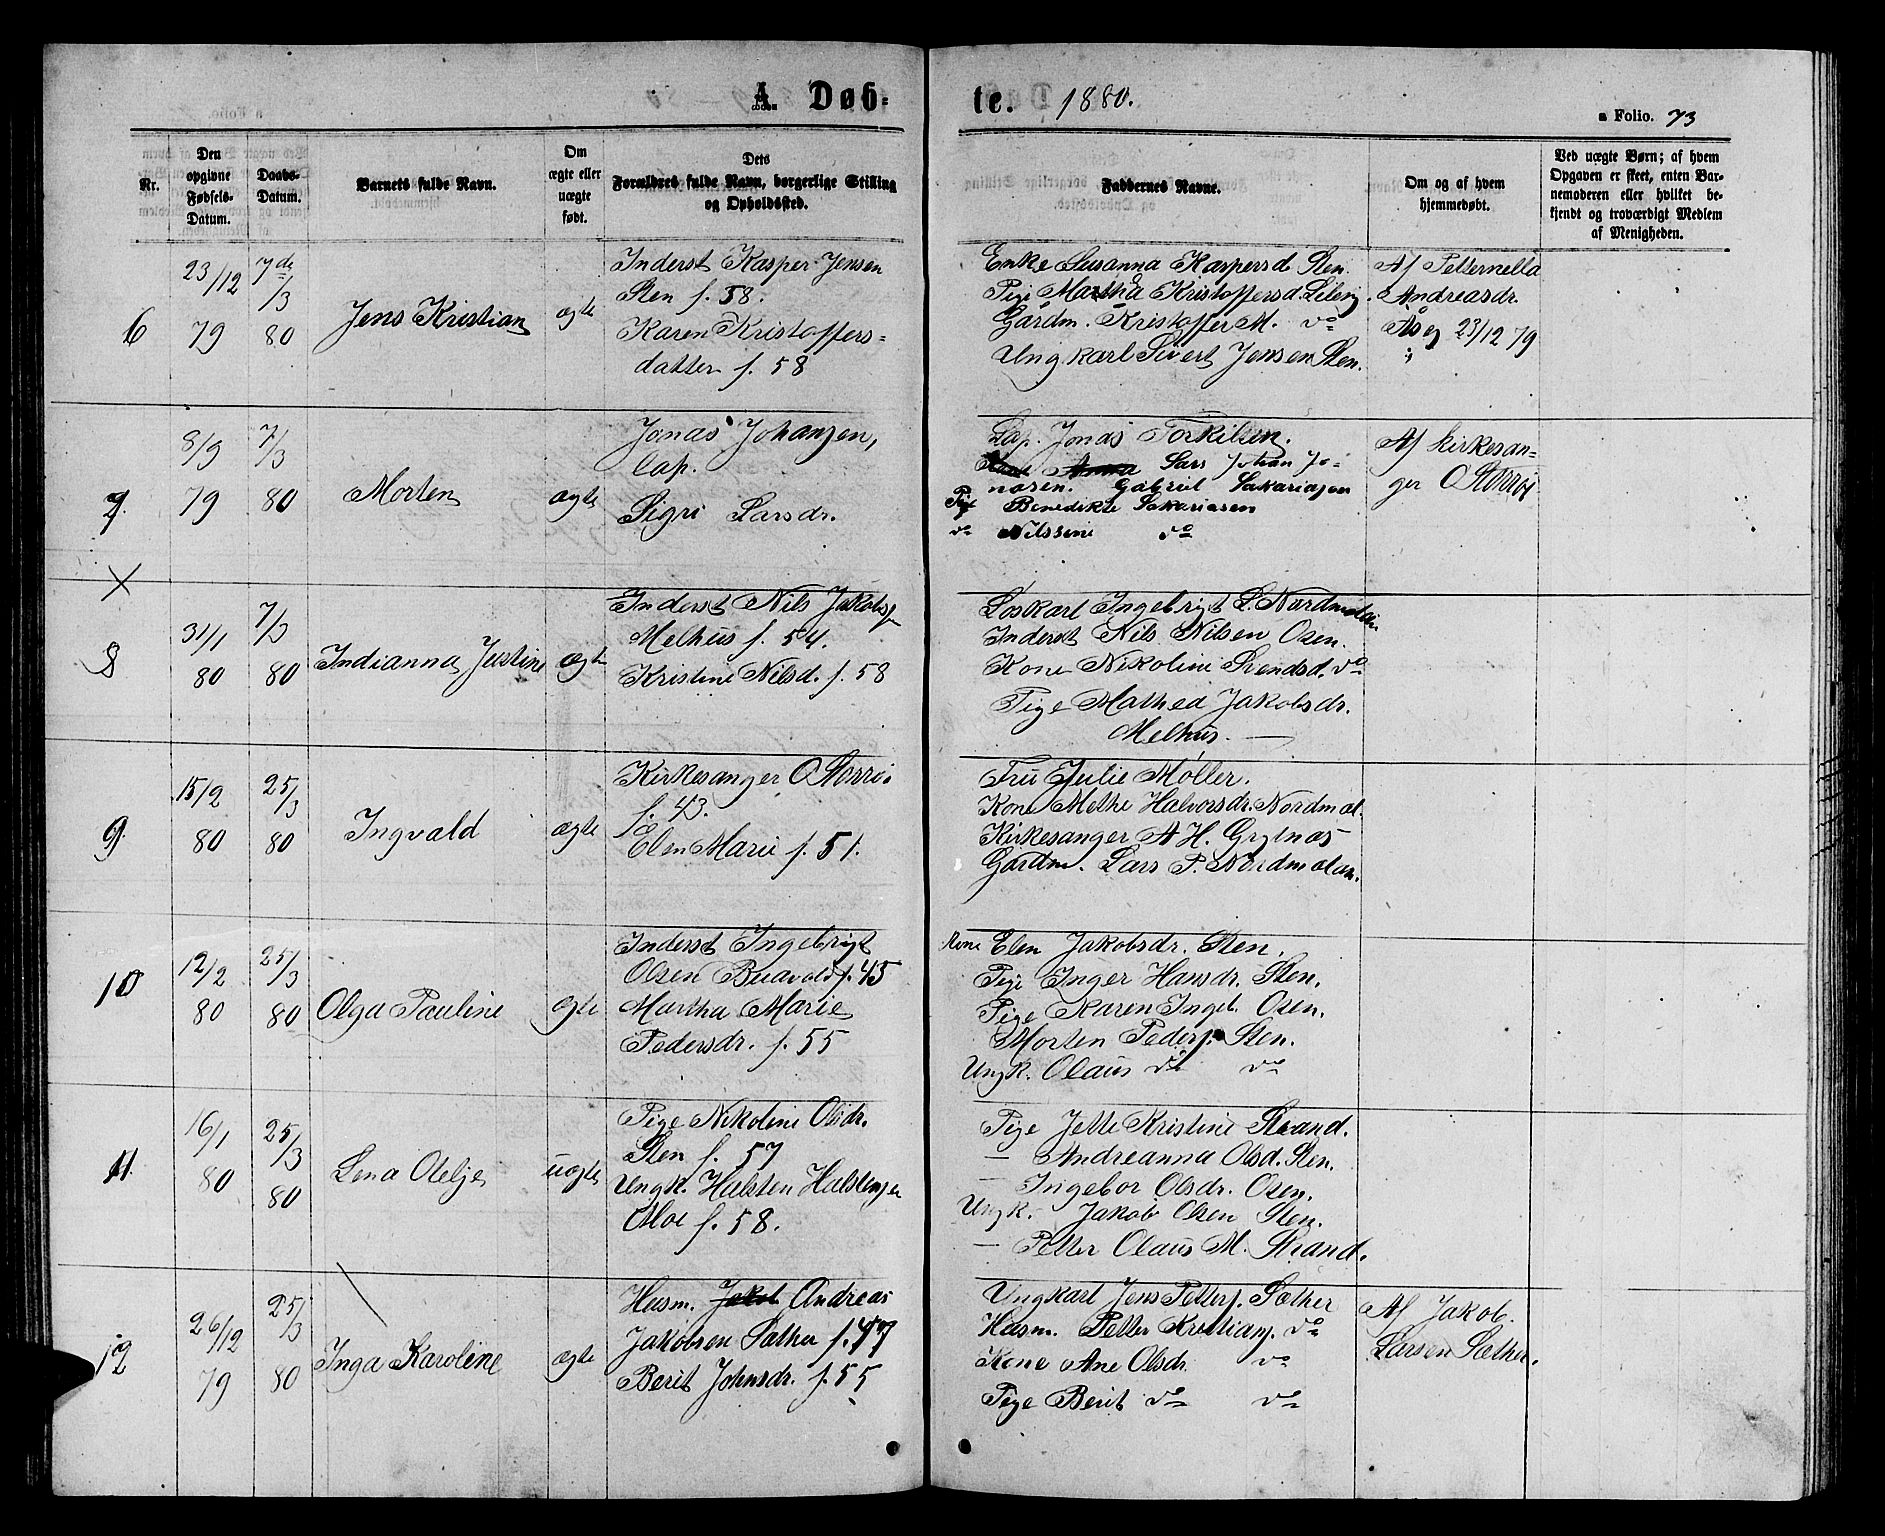 A. Døb-
te. 1880.
a Folio. 73
Nr.
Den opgivne Fødsels-Datum.
Daabs-Datum.
Barnets fulde Navn.
Om ægte eller uægte født.
Dets Forældres fulde Navn, borgerlige Stilling og Opholdssted.
Faddernes Navne.
Om og af hvem hjemmedøbt.
Ved uægte Børn; af hvem Opgaven er skeet, enten Barnemoderen eller hvilket bekjendt og troværdigt Medlem af Menigheden.
6
23/12 79
7de/3 80
Jens Kristian
ægte
Inderst Kasper Jensen
Sten f. 58.
Karen Kristoffers=
datter f. 58
Enke Susanna Kaspersd Sten.
Pige Martha Kristoffersd.
Gårdm. Kristoffer M. do
Ungkarl Sivert Jensen Sten.
Af Petternella
Andreasdr.
23/12 79
7
8/9 79
7/3 80
Morten
ægte
Jonas Johansen,
lap.
Sigri Larsdr.
Lap. Jonas Torkilsen.
Lars Johan Jo-
nasen. Gabriel Sakariasen
Pige Benedikte Sakariasen
do Nilssine do
Af kirkesan=
ger O Storrøi
8
31/1 80
7/3 80
Indianna Justine
ægte
Inderst Nils Jakobs
Melhus f. 54.
Kristine Nilsd. f. 58
Løskarl Ingebrigt L. Nordmelan
Inderst Nils Nilsen Osen.
Kone Nikoline Svendsd. do
Pige Mathea Jakobsdr.
Melhus.
9.
15/2 80
25/3 80
Ingvald
ægte
Kirkesanger O Storrøi
f. 43.
Elen Marie f. 51.
Fru Julie Møller.
Kone Methe Halvorsdr. Nordmel.
Kirkesanger A H. Grytnæs
Gårdm. Lars P. Nordmelan.
10
12/2 80
25/3 80
Olga Pauline
ægte
Inderst Ingebrigt
Olsen Buavold f. 45
Martha Marie
Pedersdr. f. 55
Kone Elen Jakobsdr. Sten.
Pige Inger Hansdr. Sten.
Pige Karen Ingeb. Osen.
Morten Peders. Sten.
Ungk. Olaus do do
11
16/1 80
25/3 80
Lena Otelje
uægte
Pige Nikoline Olsdr.
Sten f. 57
Ungk. Halsten Halstensen
Moe f. 58.
Pige Jette Kristine Strand.
— Andreanna Olsd. Sten.
— Ingebor Olsdr. Osen.
Ungk. Jakob Olsen Sten.
— Petter Olaus M. Strand.
12
26/12 79
25/3 80
Inga Karoline
ægte
Husm. Jakob Andreas
Jakobsen Sæther f. 47
Berit Johnsdr. f. 55
Ungkarl Jens Petters. Sæther
Husm. Petter Kristians. do
Kone Ane Olsdr. do
Pige Berit do do
Af Jakob
Larsen Sæther.